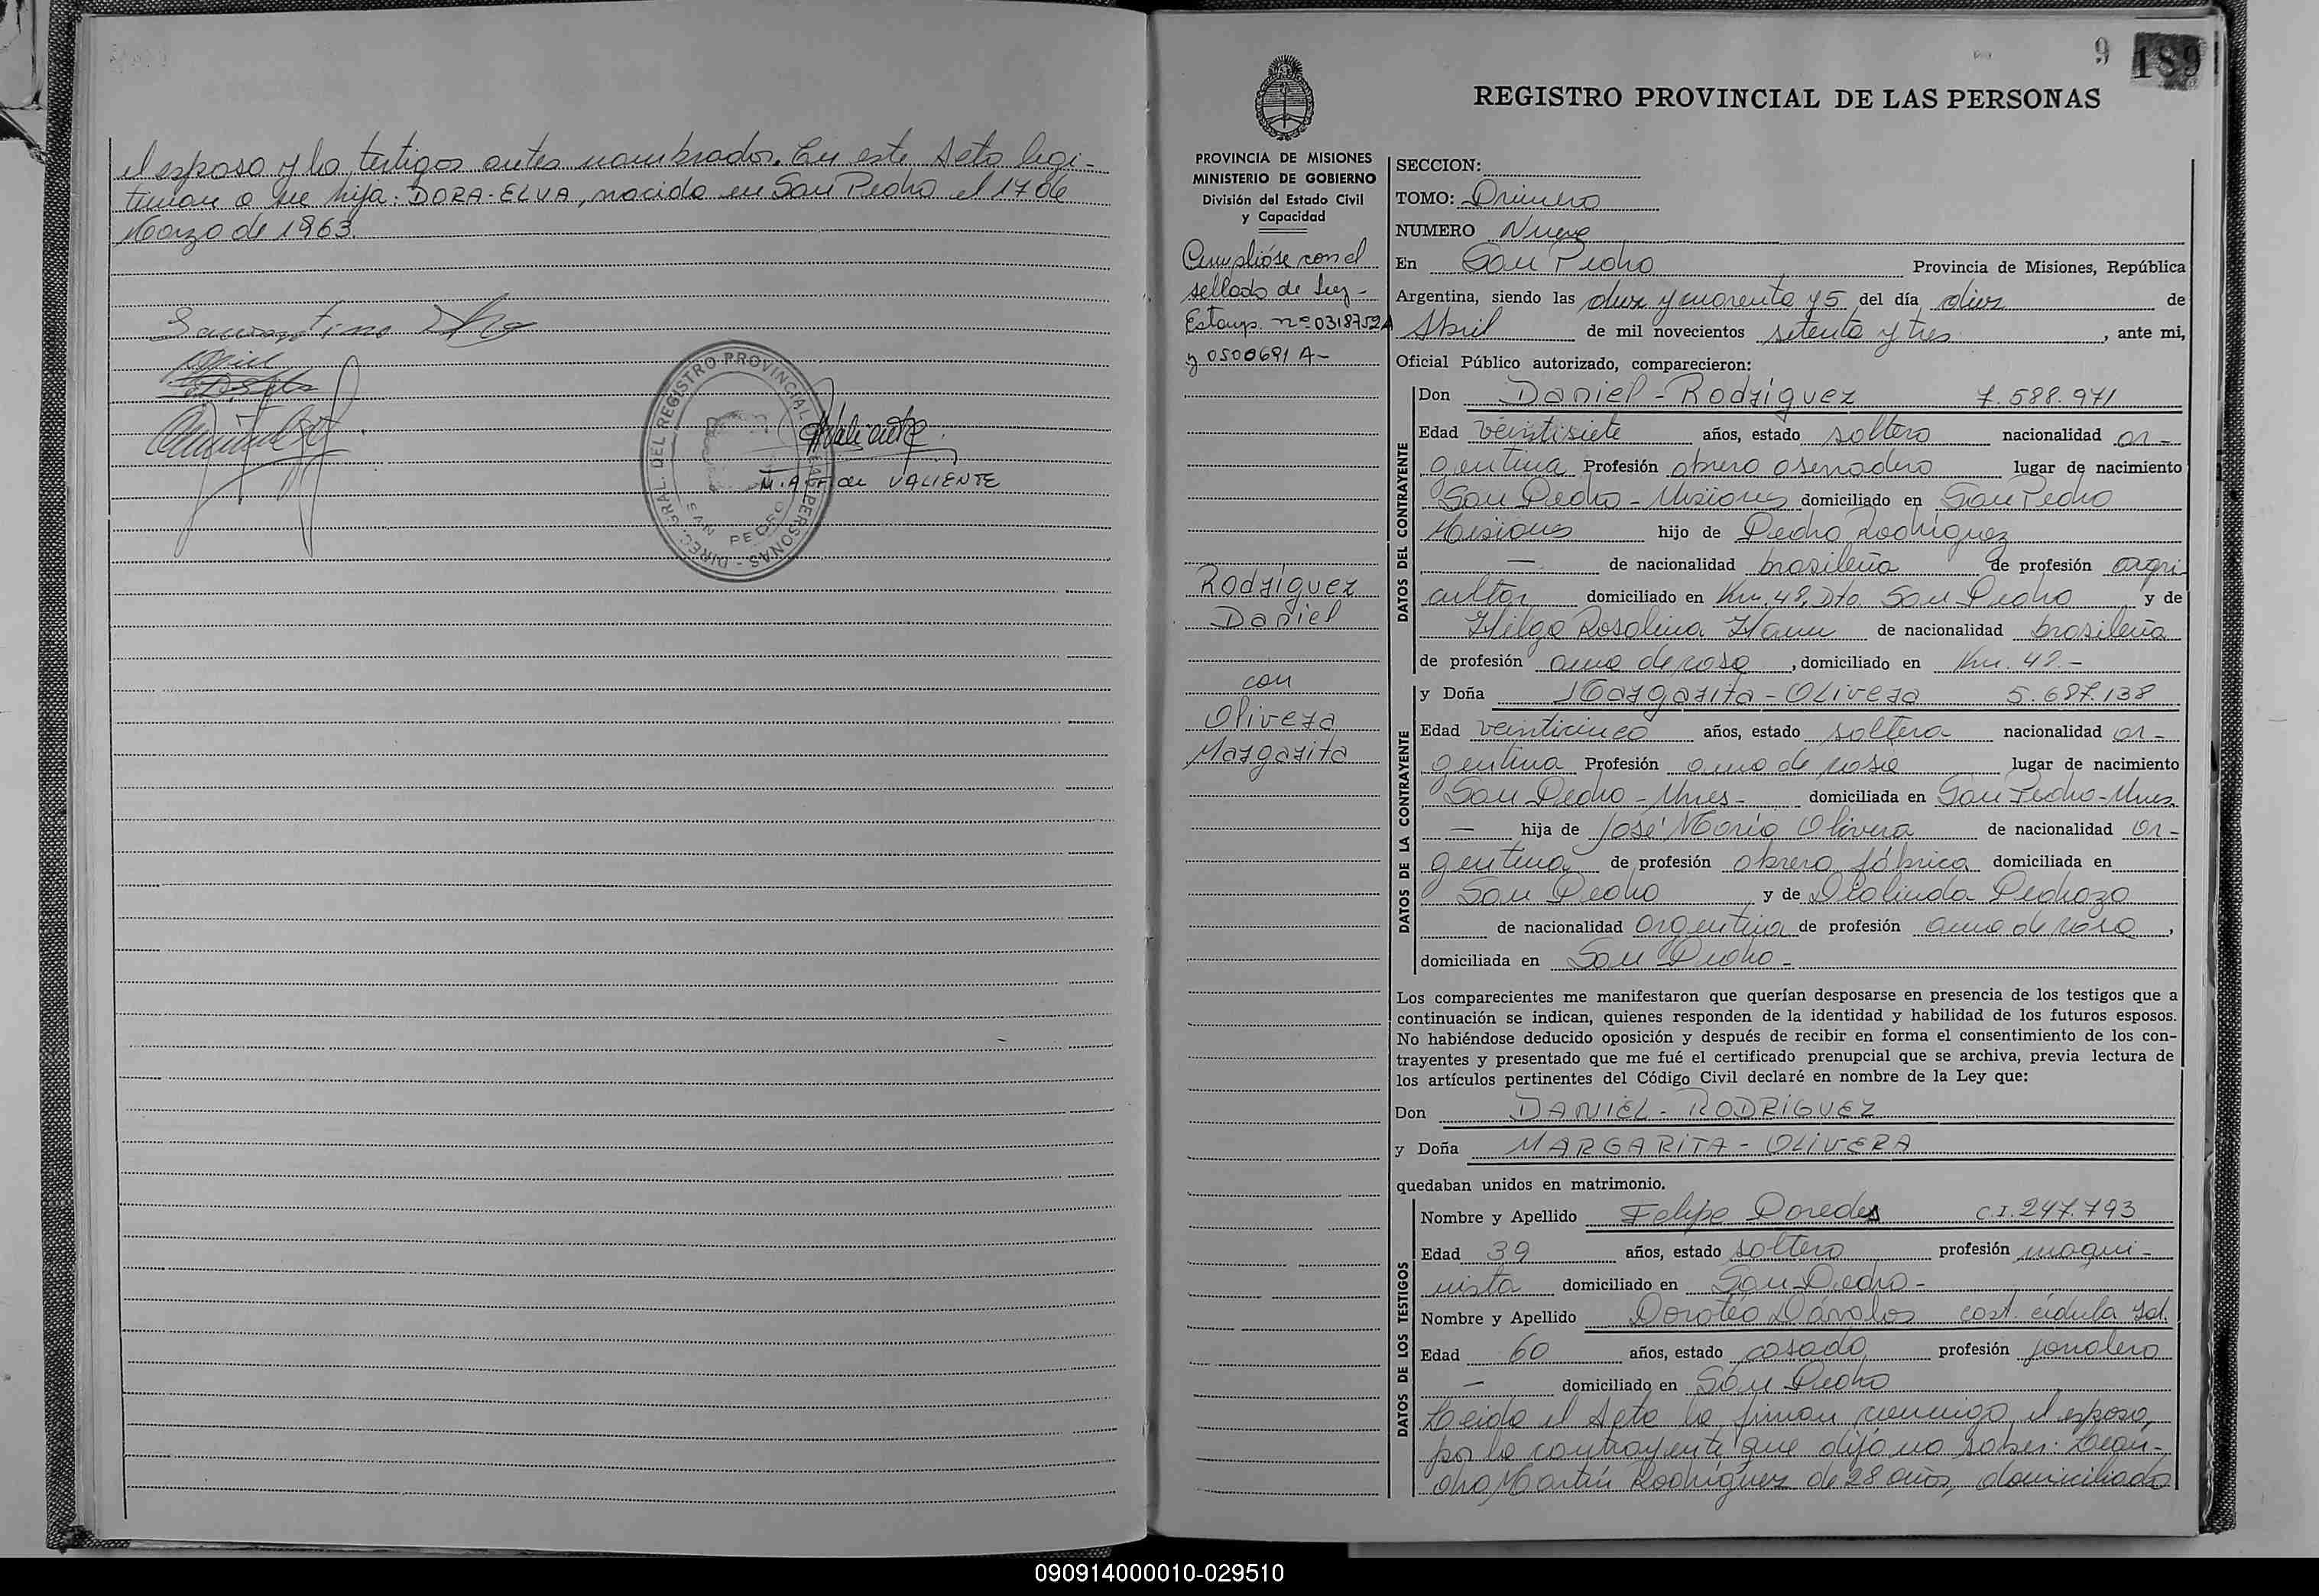 el esposo y lo testigos antes nombrados. En este Acto legi-
timan a su hija: DORA-ELVA, nacida en San Pedro el 17 de
Marzo de 1963.
DIREC. GRAL. DEL REGISTRO PROVINCIAL DE LAS PERSONAS
SAN PEDRO
M. A. F. de VALIENTE
9 189
REGISTRO PROVINCIAL DE LAS PERSONAS
PROVINCIA DE MISIONES
MINISTERIO DE GOBIERNO
División del Estado Civil
y Capacidad
Cumplióse con el
sellado de Ley-
Estamp. nº 0318752A
y 0500691 A-
Rodríguez
Daniel
con
Olivera
Margarita
SECCION:
TOMO: Primero
NUMERO Nueve
En San Pedro Provincia de Misiones, República
Argentina, siendo las diez y cuarenta y 5 del día diez de
Abril de mil novecientos setenta y tres, ante mi,
Oficial Público autorizado, comparecieron:
DATOS DEL CONTRAYENTE
Don Daniel-Rodríguez 7.588.971
Edad veintisiete años, estado soltero nacionalidad ar-
gentina Profesión obrero aserradero lugar de nacimiento
San Pedro-Misiones domiciliado en San Pedro
Misiones hijo de Pedro Rodríguez
— de nacionalidad brasileña de profesión agri
cultor domiciliado en Km. 48, Dto. San Pedro y de
Helga Rosalina Hann de nacionalidad brasileña
de profesión ama de casa, domiciliado en Km. 48.-
DATOS DE LA CONTRAYENTE
y Doña Margarita-Olivera 5.687.138
Edad veinticinco años, estado soltera nacionalidad ar-
gentina Profesión ama de casa lugar de nacimiento
San Pedro-Mnes- domiciliada en San Pedro-Mnes
— hija de José María Olivera de nacionalidad ar-
gentina de profesión obrero fábrica domiciliada en
San Pedro y de Deolinda Pedrozo
de nacionalidad argentina de profesión ama de casa,
domiciliada en San Pedro-
Los comparecientes me manifestaron que querían desposarse en presencia de los testigos que a
continuación se indican, quienes responden de la identidad y habilidad de los futuros esposos.
No habiéndose deducido oposición y después de recibir en forma el consentimiento de los con-
trayentes y presentado que me fué el certificado prenupcial que se archiva, previa lectura de
los artículos pertinentes del Código Civil declaré en nombre de la Ley que:
Don DANIEL-RODRÍGUEZ
y Doña MARGARITA-OLIVERA
quedaban unidos en matrimonio.
DATOS DE LOS TESTIGOS
Nombre y Apellido Felipe Paredes C.I. 247.793
Edad 39 años, estado soltero profesión maqui-
nista domiciliado en San Pedro-
Nombre y Apellido Doroteo Dávalos cédula
Edad 60 años, estado casado profesión jornalero
— domiciliado en San Pedro
Leída el Acta la firman conmigo, el esposo,
por la contrayente que dijo no saber: Lean-
dro Martín Rodríguez de 28 años, domiciliado
090914000010-029510